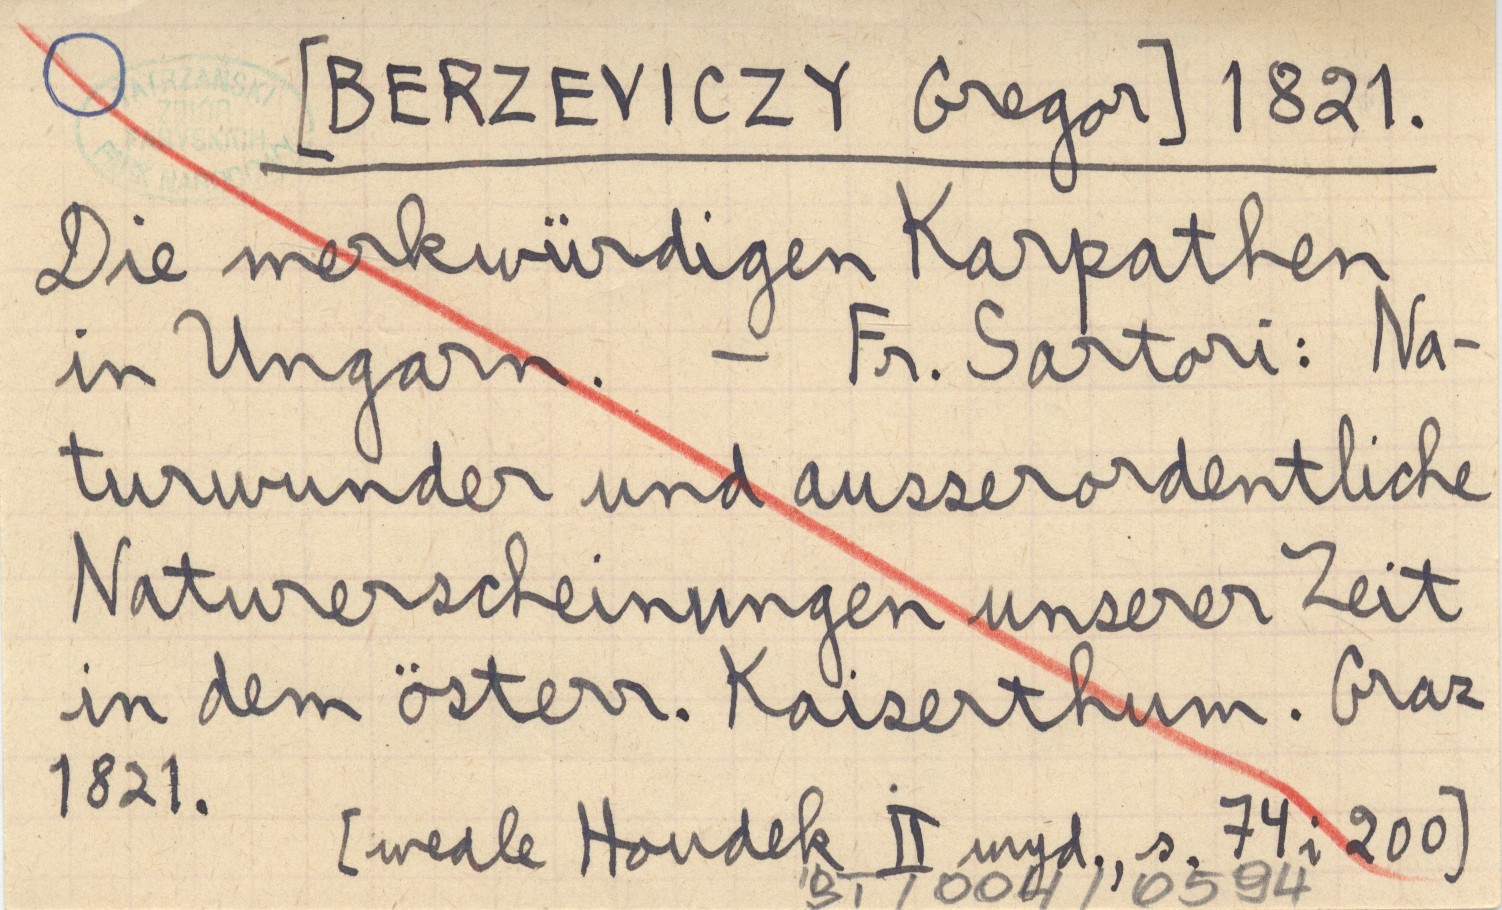 TATRZAŃSKI
ZBIÓR
PARK NARODOWY
[BERZEVICZY Gregor] 1821.
Die merkwürdigen Karpathen
in Ungarn. — Fr. Sartori: Na-
turwunder und ausserordentliche
Naturerscheinungen unserer Zeit
in dem österr. Kaiserthum. Graz
1821.
[wedle Houdek II wyd., s. 74 i 200]
BT / 004 / 0594